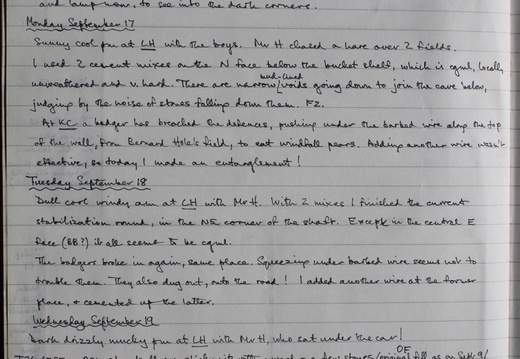 and lamp now, to see into the dark corners.
Monday September 17
Sunny cool pm at LH with the boys. Mr H chased a hare over 2 fields.
I used 2 cement mixes on the N face below the bucket shelf, which is cgml, locally
mud-lined
unweathered and v. hard. There are narrow voids going down to join the cave below,
judging by the noise of stones falling down them. F2.
At KC a badger has breached the defences, pushing under the barbed wire along the top
of the wall, from Bernard Hole's field, to eat windfall pears. Adding another wire wasn't
effective, so today I made an entanglement!
Tuesday September 18
Dull cool windy am at LH with Mr H. With 2 mixes I finished the current
stabilization round, in the NE corner of the shaft. Except in the central E
face (BB?) it all seems to be cgml.
The badgers broke in again, same place. Squeezing under barbed wire seems not to
trouble them. They also dug out, onto the road! I added another wire at the former
place, & cemented up the latter.
Wednesday September 19
Dark drizzly mucky pm at LH with Mr H, who sat under the car!
OF
a few stones/original fill as on